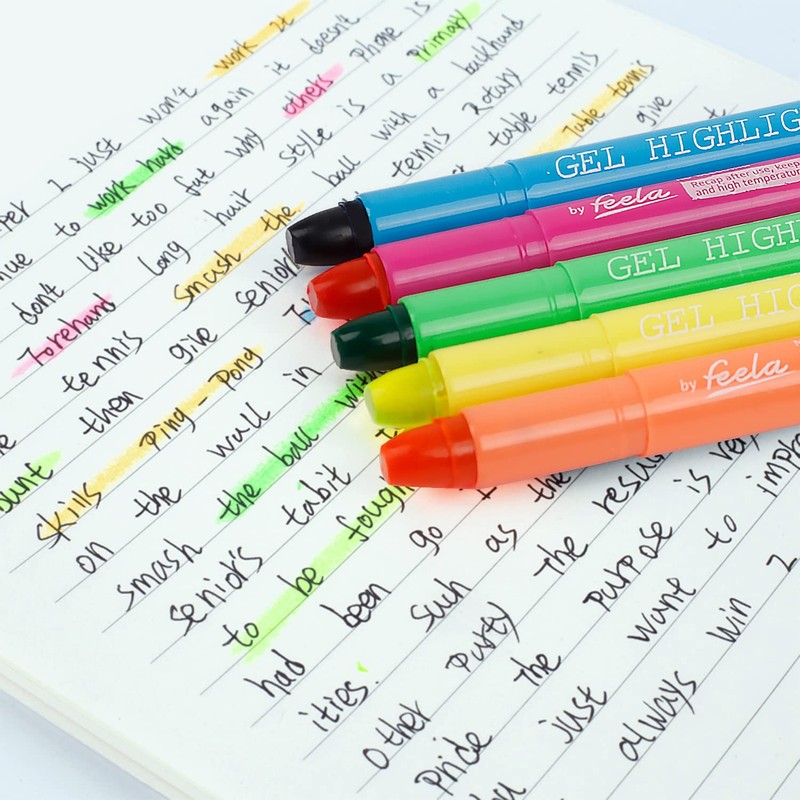 work it
per I just won't
nue to work hard again it doesn't
don't like too fat why others phone is
Forehand long hair style is a primary
tennis smash the ball with a backhand
then give senior tennis Rotary
ount table tennis
skills Ping-Pong Table tennis
on the wall in give
smash the ball with
senior's tabit
to be fough
had been go
ities. such as the
other party the resu
Pride the purpose is ver
just want to impro
always win 2
GEL HIGHLIG
by feela Recap after use, keep
and high temperatur
GEL HIGH
GEL HIG
by feela